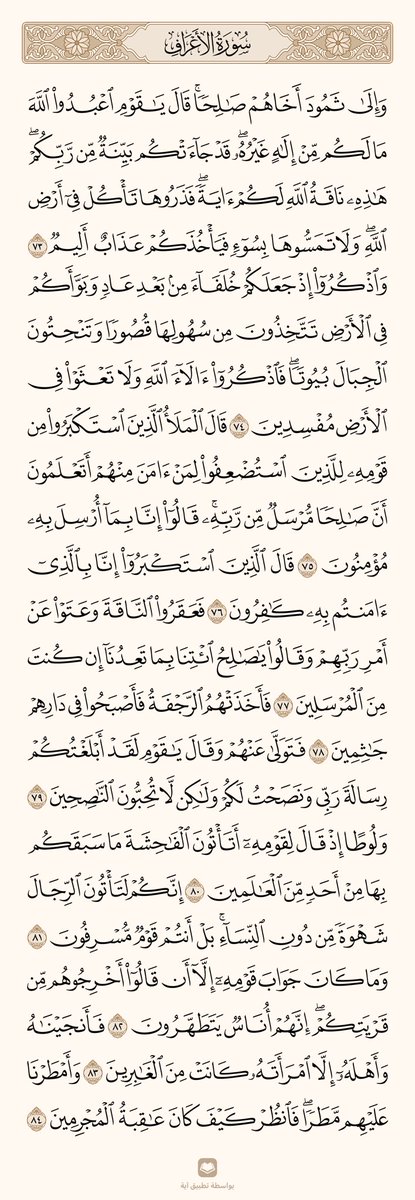 سُورَةُ الأَعۡرَافِ
وَإِلَىٰ ثَمُودَ أَخَاهُمۡ صَٰلِحٗاۚ قَالَ يَٰقَوۡمِ ٱعۡبُدُواْ ٱللَّهَ
مَا لَكُم مِّنۡ إِلَٰهٍ غَيۡرُهُۥۖ قَدۡ جَآءَتۡكُم بَيِّنَةٞ مِّن رَّبِّكُمۡۖ
هَٰذِهِۦ نَاقَةُ ٱللَّهِ لَكُمۡ ءَايَةٗۖ فَذَرُوهَا تَأۡكُلۡ فِيٓ أَرۡضِ
ٱللَّهِۖ وَلَا تَمَسُّوهَا بِسُوٓءٖ فَيَأۡخُذَكُمۡ عَذَابٌ أَلِيمٞ ٧٣
وَٱذۡكُرُوٓاْ إِذۡ جَعَلَكُمۡ خُلَفَآءَ مِنۢ بَعۡدِ عَادٖ وَبَوَّأَكُمۡ
فِي ٱلۡأَرۡضِ تَتَّخِذُونَ مِن سُهُولِهَا قُصُورٗا وَتَنۡحِتُونَ
ٱلۡجِبَالَ بُيُوتٗاۖ فَٱذۡكُرُوٓاْ ءَالَآءَ ٱللَّهِ وَلَا تَعۡثَوۡاْ فِي
ٱلۡأَرۡضِ مُفۡسِدِينَ ٧٤ قَالَ ٱلۡمَلَأُ ٱلَّذِينَ ٱسۡتَكۡبَرُواْ مِن
قَوۡمِهِۦ لِلَّذِينَ ٱسۡتُضۡعِفُواْ لِمَنۡ ءَامَنَ مِنۡهُمۡ أَتَعۡلَمُونَ
أَنَّ صَٰلِحٗا مُّرۡسَلٞ مِّن رَّبِّهِۦۚ قَالُوٓاْ إِنَّا بِمَآ أُرۡسِلَ بِهِۦ
مُؤۡمِنُونَ ٧٥ قَالَ ٱلَّذِينَ ٱسۡتَكۡبَرُوٓاْ إِنَّا بِٱلَّذِيٓ
ءَامَنتُم بِهِۦ كَٰفِرُونَ ٧٦ فَعَقَرُواْ ٱلنَّاقَةَ وَعَتَوۡاْ عَنۡ
أَمۡرِ رَبِّهِمۡ وَقَالُواْ يَٰصَٰلِحُ ٱئۡتِنَا بِمَا تَعِدُنَآ إِن كُنتَ
مِنَ ٱلۡمُرۡسَلِينَ ٧٧ فَأَخَذَتۡهُمُ ٱلرَّجۡفَةُ فَأَصۡبَحُواْ فِي دَارِهِمۡ
جَٰثِمِينَ ٧٨ فَتَوَلَّىٰ عَنۡهُمۡ وَقَالَ يَٰقَوۡمِ لَقَدۡ أَبۡلَغۡتُكُمۡ
رِسَالَةَ رَبِّي وَنَصَحۡتُ لَكُمۡ وَلَٰكِن لَّا تُحِبُّونَ ٱلنَّٰصِحِينَ ٧٩
وَلُوطًا إِذۡ قَالَ لِقَوۡمِهِۦٓ أَتَأۡتُونَ ٱلۡفَٰحِشَةَ مَا سَبَقَكُم
بِهَا مِنۡ أَحَدٖ مِّنَ ٱلۡعَٰلَمِينَ ٨٠ إِنَّكُمۡ لَتَأۡتُونَ ٱلرِّجَالَ
شَهۡوَةٗ مِّن دُونِ ٱلنِّسَآءِۚ بَلۡ أَنتُمۡ قَوۡمٞ مُّسۡرِفُونَ ٨١
وَمَا كَانَ جَوَابَ قَوۡمِهِۦٓ إِلَّآ أَن قَالُوٓاْ أَخۡرِجُوهُم مِّن
قَرۡيَتِكُمۡۖ إِنَّهُمۡ أُنَاسٞ يَتَطَهَّرُونَ ٨٢ فَأَنجَيۡنَٰهُ
وَأَهۡلَهُۥٓ إِلَّا ٱمۡرَأَتَهُۥ كَانَتۡ مِنَ ٱلۡغَٰبِرِينَ ٨٣ وَأَمۡطَرۡنَا
عَلَيۡهِم مَّطَرٗاۖ فَٱنظُرۡ كَيۡفَ كَانَ عَٰقِبَةُ ٱلۡمُجۡرِمِينَ ٨٤
بواسطة تطبيق آية